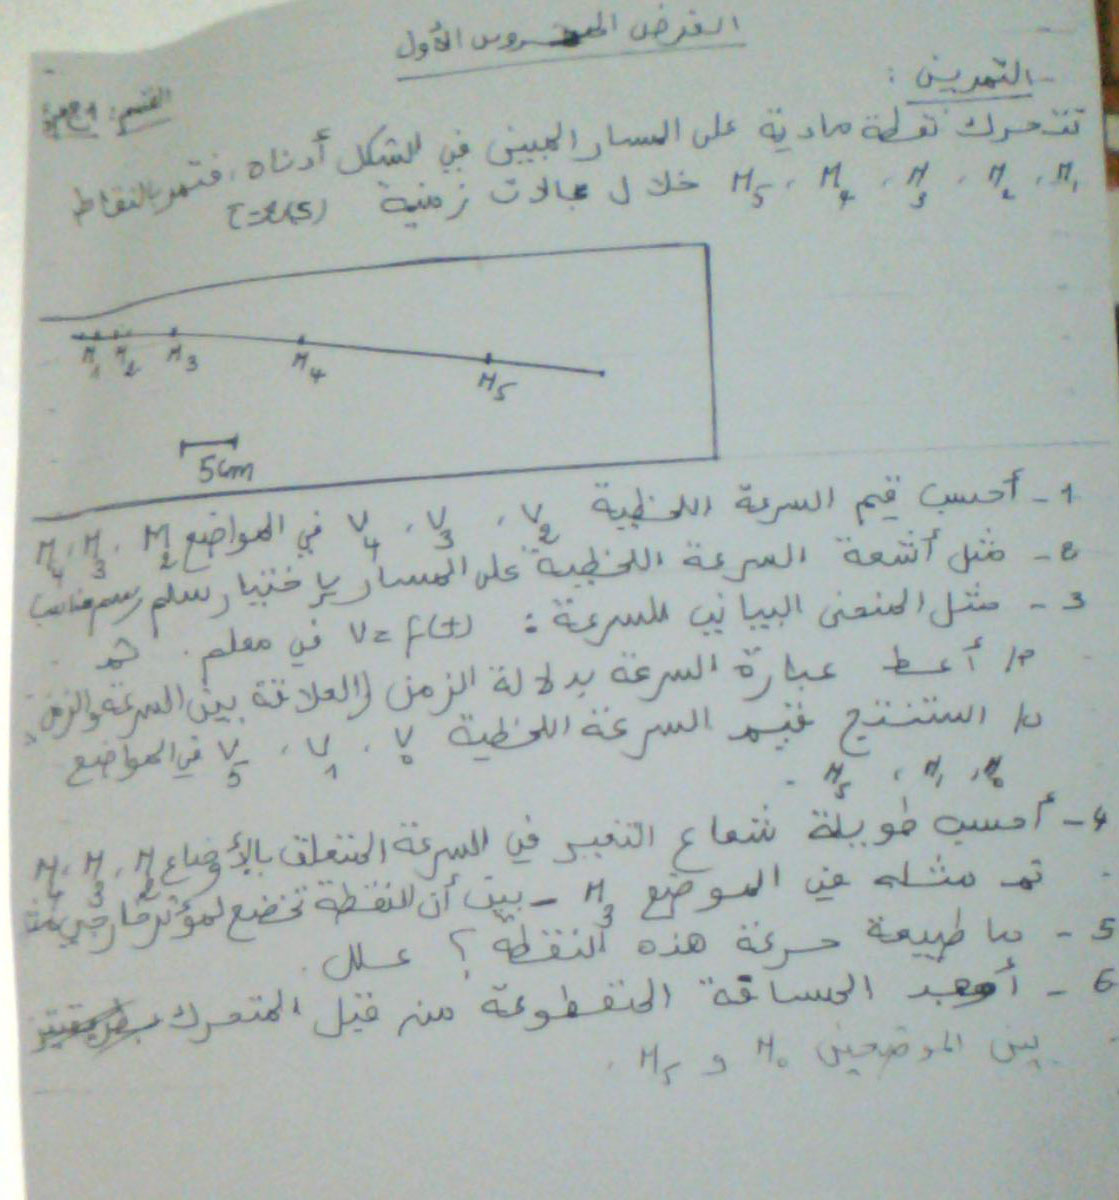 الفرض المحروس الأول
- التمرين :
القسم:
تتحرك نقطة مادية على المسار المبين في الشكل أدناه، فتمر بالنقاط
M1، M2، M3، M4، M5 خلال مجالات زمنية
M1 M2 M3 M4 M5
5cm
1- أحسب قيم السرعة اللحظية V2، V3، V4 في المواضع M2، M3، M4
2- مثل أشعة السرعة اللحظية على المسار باختيار سلم رسم مناسب
3- مثل المنحنى البياني للسرعة : V = f(t) في معلم. ثم
أ/ أعط عبارة السرعة بدلالة الزمن (العلاقة بين السرعة والزمن)
ب/ استنتج قيم السرعة اللحظية V0، V1، V5 في المواضع
M0، M1، M5.
4- أحسب طويلة شعاع التغير في السرعة المتعلق بالأوضاع M2، M3، M4
ثم مثله في الموضع M3 - بين أن النقطة تخضع لمؤثر خارجي
5- ما طبيعة حركة هذه النقطة؟ علل.
6- أوجد المسافة المقطوعة من قبل المتحرك
بين الموضعين M0 و M5.